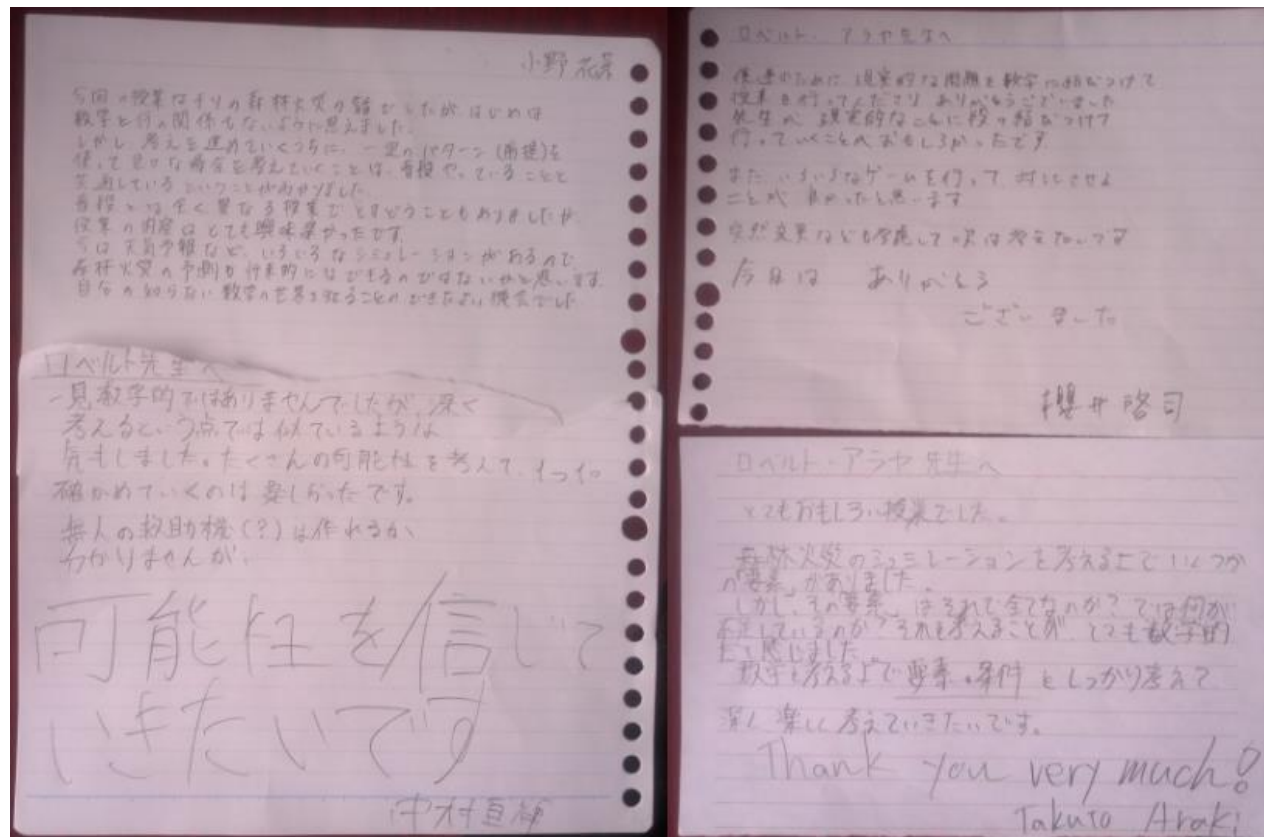 小野
今回の授業はチリの森林火災の話でしたがはじめは
数学と何の関係もないように思えました。
しかし考えを進めていくうちに、一定のパターン(前提)を
使って色々な場合を考えていくことは、普段やっていることと
共通しているということがわかりました
普段とは全く異なる授業でとまどうこともありましたが
授業の内容はとても興味深かったです。
今は天気予報など、いろいろなシミュレーションがあるので
森林火災の予測も将来的にはできるのではないかと思います。
自分の知らない数学の世界を知ることのできたよい機会でした
ロベルト先生へ
一見数学的ではありませんでしたが、深く
考えるという点では似ているような
気もしました。たくさんの可能性を考えて、1つ1つ
確かめていくのは楽しかったです。
無人の救助機(?)は作れるか、
わかりませんが、
可能性を信じて
いきたいです
中村直
ロベルト・アラヤ先生へ
僕達のために現実的な問題を数学に結びつけて
授業を行ってくださり ありがとうございました
先生が、現実的なことに結びつけて
行っていくことがおもしろかったです
また いろいろなゲームを行って
ことが 良かったと思います
突然変異なども考慮して次は考えたいです
今日は ありがとう
ございました
櫻井啓司
ロベルト・アラヤ先生へ
とてもおもしろい授業でした。
森林火災のシュミレーションを考える上でいくつか
の「要素」がありました。
しかし、その「要素」はそれで全てなのか?では何が
不足しているのか?それを考えることが とても数学的
だと感じました
数学を考える上で要素・条件をしっかり考えて
楽しく考えていきたいです。
Thank you very much!
Takuto Araki